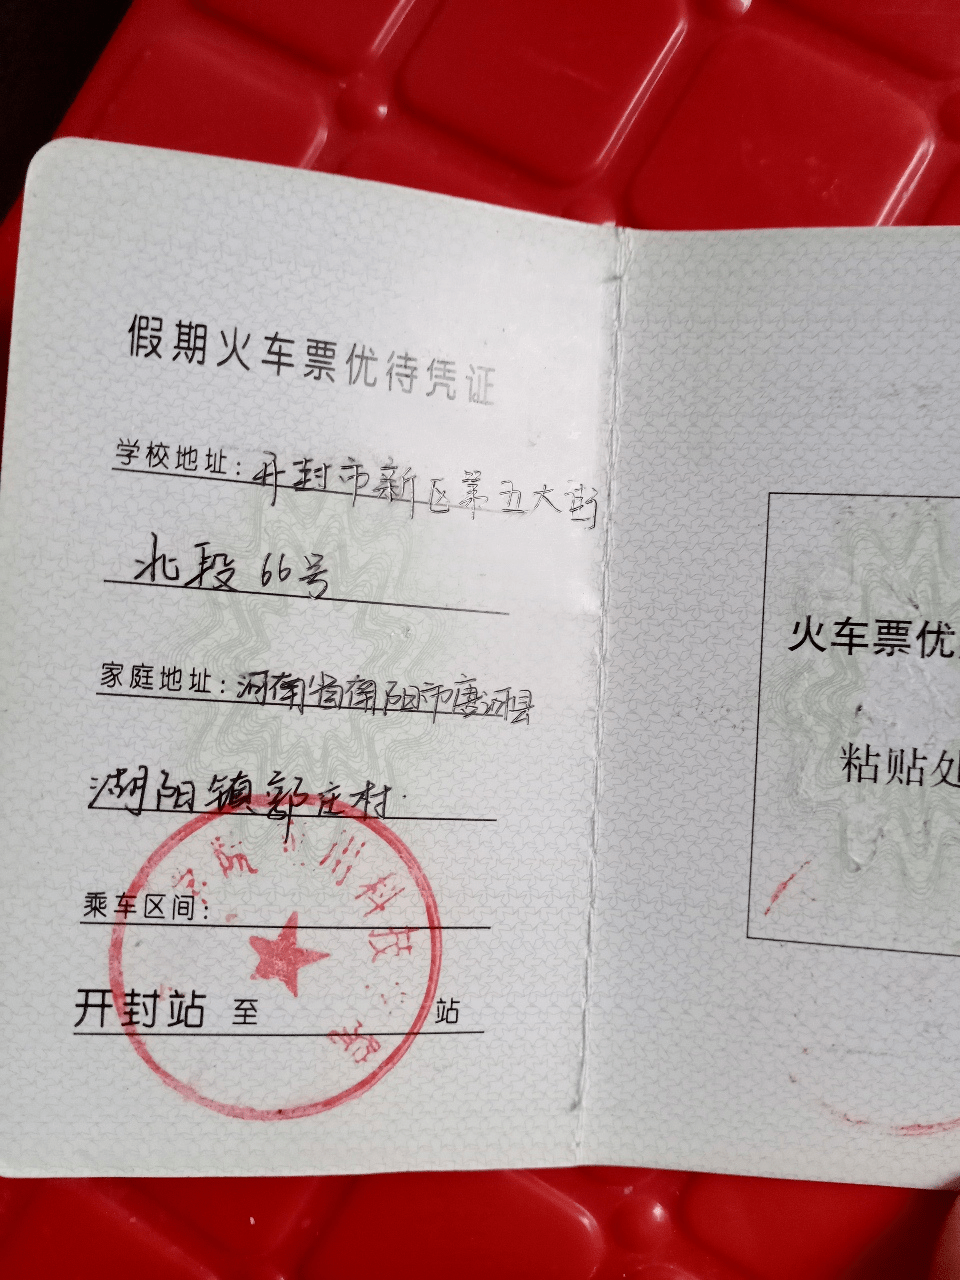 假期火车票优待凭证
学校地址：开封市新区第五大街
北段66号
家庭地址：河南省南阳市唐河县
湖阳镇郭庄村
乘车区间：
开封站 至 站
火车票优
粘贴处
科技